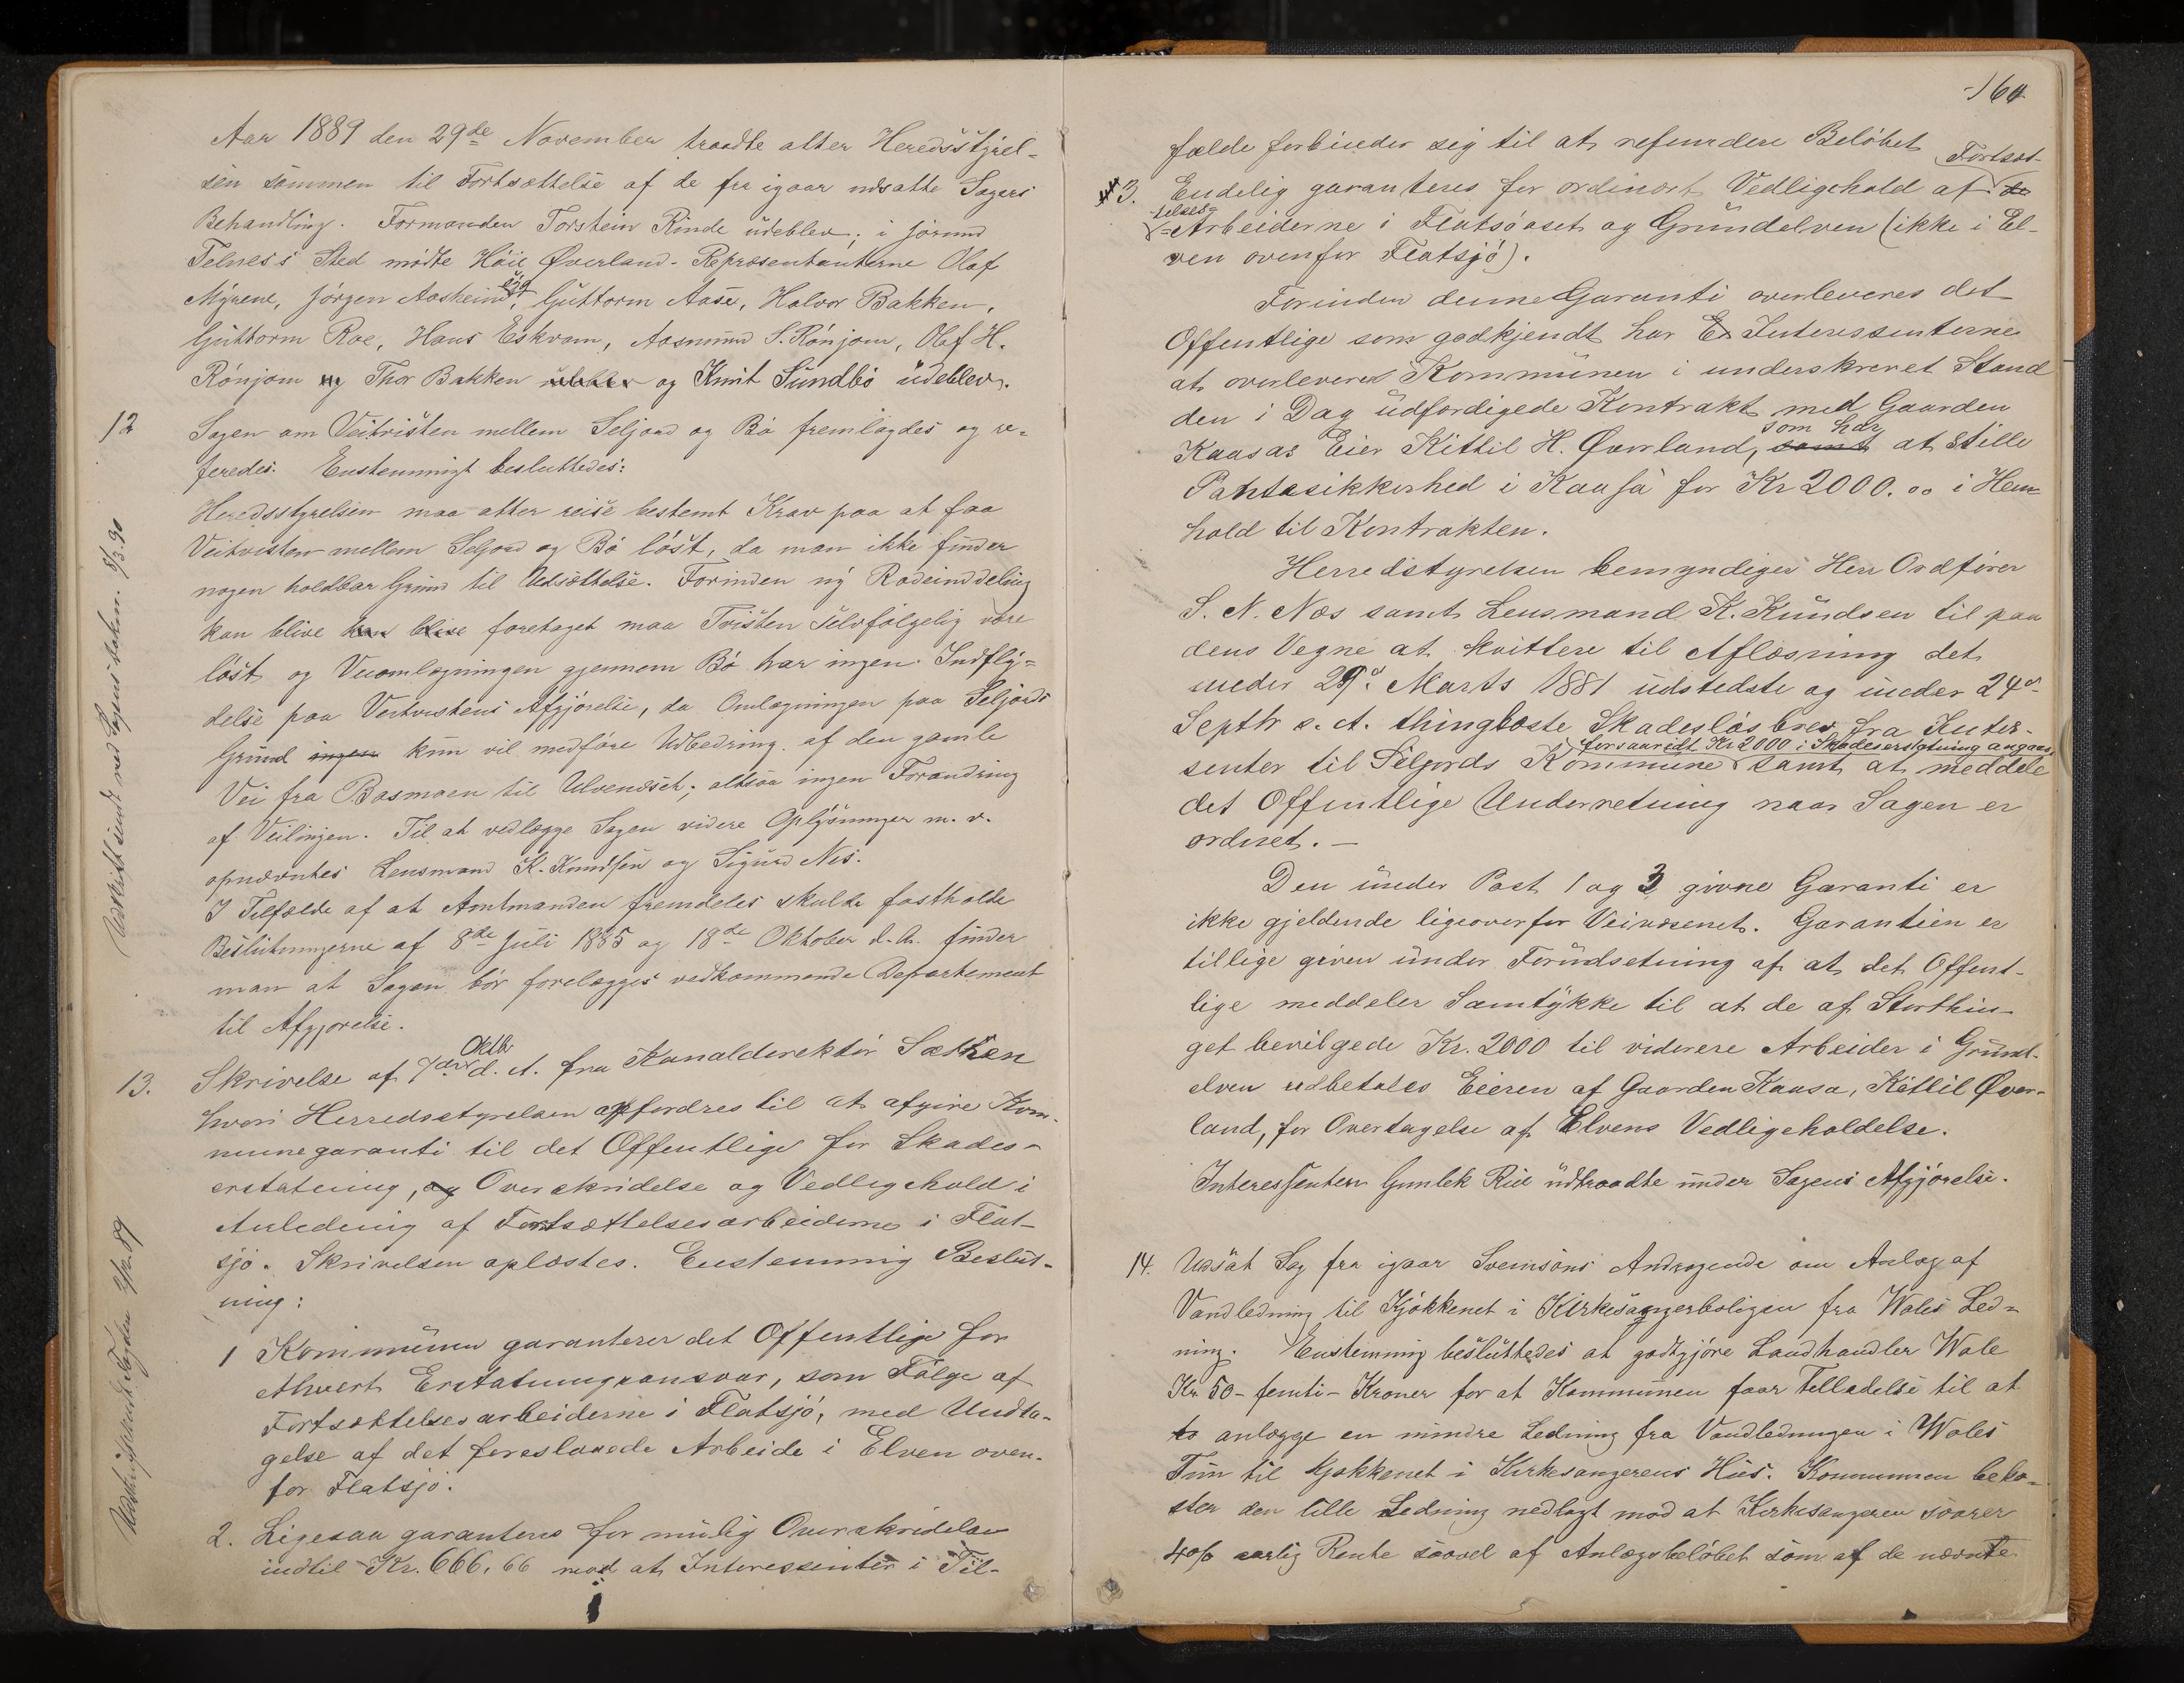 Aar 1889 den 29de November traadte atter Heredsstyrel-
sen sammen til Fortsættelse af de fra igaar udsatte Sagers
Behandling. Formanden Torstein Rinde udeblev; i Jørund
Telnes's Sted mødte Høie Øverland. Repræsentanterne Olaf
Myrene, Jørgen Aasheim, Guttorm Aase, Halvor Bakken,
Guttorm Roe, Hans Eskvam, Aasmund S. Rønjom, Olaf H.
Rønjom og Thor Bakken udeblev og Knut Sundbø udeblev.
12 Sagen om Veitvisten mellem Seljord og Bø fremlagdes og re-
feredes. Enstemmigt besluttedes:
Heredsstyrelsen maa atter reise bestemt Krav paa at faa
Veitvisten mellem Seljord og Bø løst, da man ikke finder
nogen holdbar Grund til Udsættelse. Forinden ny Rodeinddeling
kan blive kan blive foretaget maa Tvisten selvfølgelig være
løst og Veiomlægningen gjennem Bø har ingen Indfly-
delse paa Veitvistens Afgjørelse, da Omlægningen paa Seljords
Grund ingen kun vil medføre Udbedring af den gamle
Vei fra Basmoen til Ulvenæset; altsaa ingen Forandring
af Veilinjen. Til at vedlægge Sagen videre Oplysninger m. v.
opnævntes Lensmand K. Knudsen og Sigurd Nes.
I Tilfælde af at Amtmanden fremdeles skulde fastholde
Beslutningerne af 8de Juli 1885 og 18de Oktober d. A. finder
man at Sagen bør forelægges vedkommende Departement
til Afgjørelse.
Udskrift sendt ved Sagens Dokm. 5/3.90
Oktb
13. Skrivelse af 7de d. A. fra Kanaldirektør Sæthren
hvori Herredsstyrelsen opfordres til at afgive Kom-
munegaranti til det Offentlige for Skades-
erstatning, og Overskridelse og Vedligehold i
Anledning af Fortsættelsesarbeiderne i Flat-
sjø. Skrivelsen oplæstes. Enstemmig Beslut-
ning:
1 Kommunen garanterer det Offentlige for
ethvert Erstatningsansvar, som Følge af
Fortsættelsesarbeiderne i Flatsjø, med Undta-
gelse af det foreslaaede Arbeide i Elven oven-
for Flatsjø.
2. Ligesaa garanteres for mulig Overskridelse
indtil Kr. 666,66 mod at Interessenter i Til-
160
fælde forbinder sig til at refundere Beløbet
Fortsæt-
3. Endelig garanteres for ordinært Vedligehold af de
telses-
Arbeiderne i Flatsøoset og Grundelven (ikke i El-
ven ovenfor Flatsjø).
Forinden denne Garanti overleveres det
Offentlige som godkjendt har Interessenterne
at overlevere Kommunen i underskrevet Stand
den i Dag udfærdigede Kontrakt med Gaarden
som har
Kaasas Eier Kittil H. Øverland, samt at stille
Pantesikkerhed i Kaasa for Kr 2000.00 i Hen-
hold til Kontrakten.
Herredstyrelsen bemyndiger Herr Ordfører
S. N. Nes samt Lensmand K. Knudsen til paa
dens Vegne at kvittere til Aflæsning det
under 29de Marts 1881 udstedte og under 24de
Septbr s. A. thinglæste Skadesløsbrev fra Inter-
forsaavidt Kr 2000 i Skadeserstatning angaar
senter til Siljords Kommune samt at meddele
det Offentlige Underretning naar Sagen er
ordnet. —
Den under Post 1 og 3 givne Garanti er
ikke gjeldende ligeoverfor Veivæsenet. Garantien er
tillige given under Forudsetning af at det Offent-
lige meddeler Samtykke til at de af Storthin-
get bevilgede Kr. 2000 til viderere Arbeider i Grund-
elven udbetales Eieren af Gaarden Kaasa, Kittil Øver-
land, for Overtagelse af Elvens Vedligeholdelse.
Interessenten Gunlek Rue udtraadte under Sagens Afgjørelse.
14. Udsat Sag fra igaar Sveinsøns Andragende om Anlæg af
Vandledning til Kjøkkenet i Kirkesangerboligen fra Wales Led-
ning. Enstemmig besluttedes at godtgjøre Landhandler Wale
Kr. 50 - femti - Kroner for at Kommunen faar Tilladelse til at
to anlægge en mindre Ledning fra Vandledningen i Wales
Tun til Kjøkkenet i Kirkesangerens Hus. Kommunen beko-
ster den lille Ledning nedlagt mod at Kirkesangeren svarer
4% aarlig Rente saavel af Anlægsbeløbet som af de nævnte